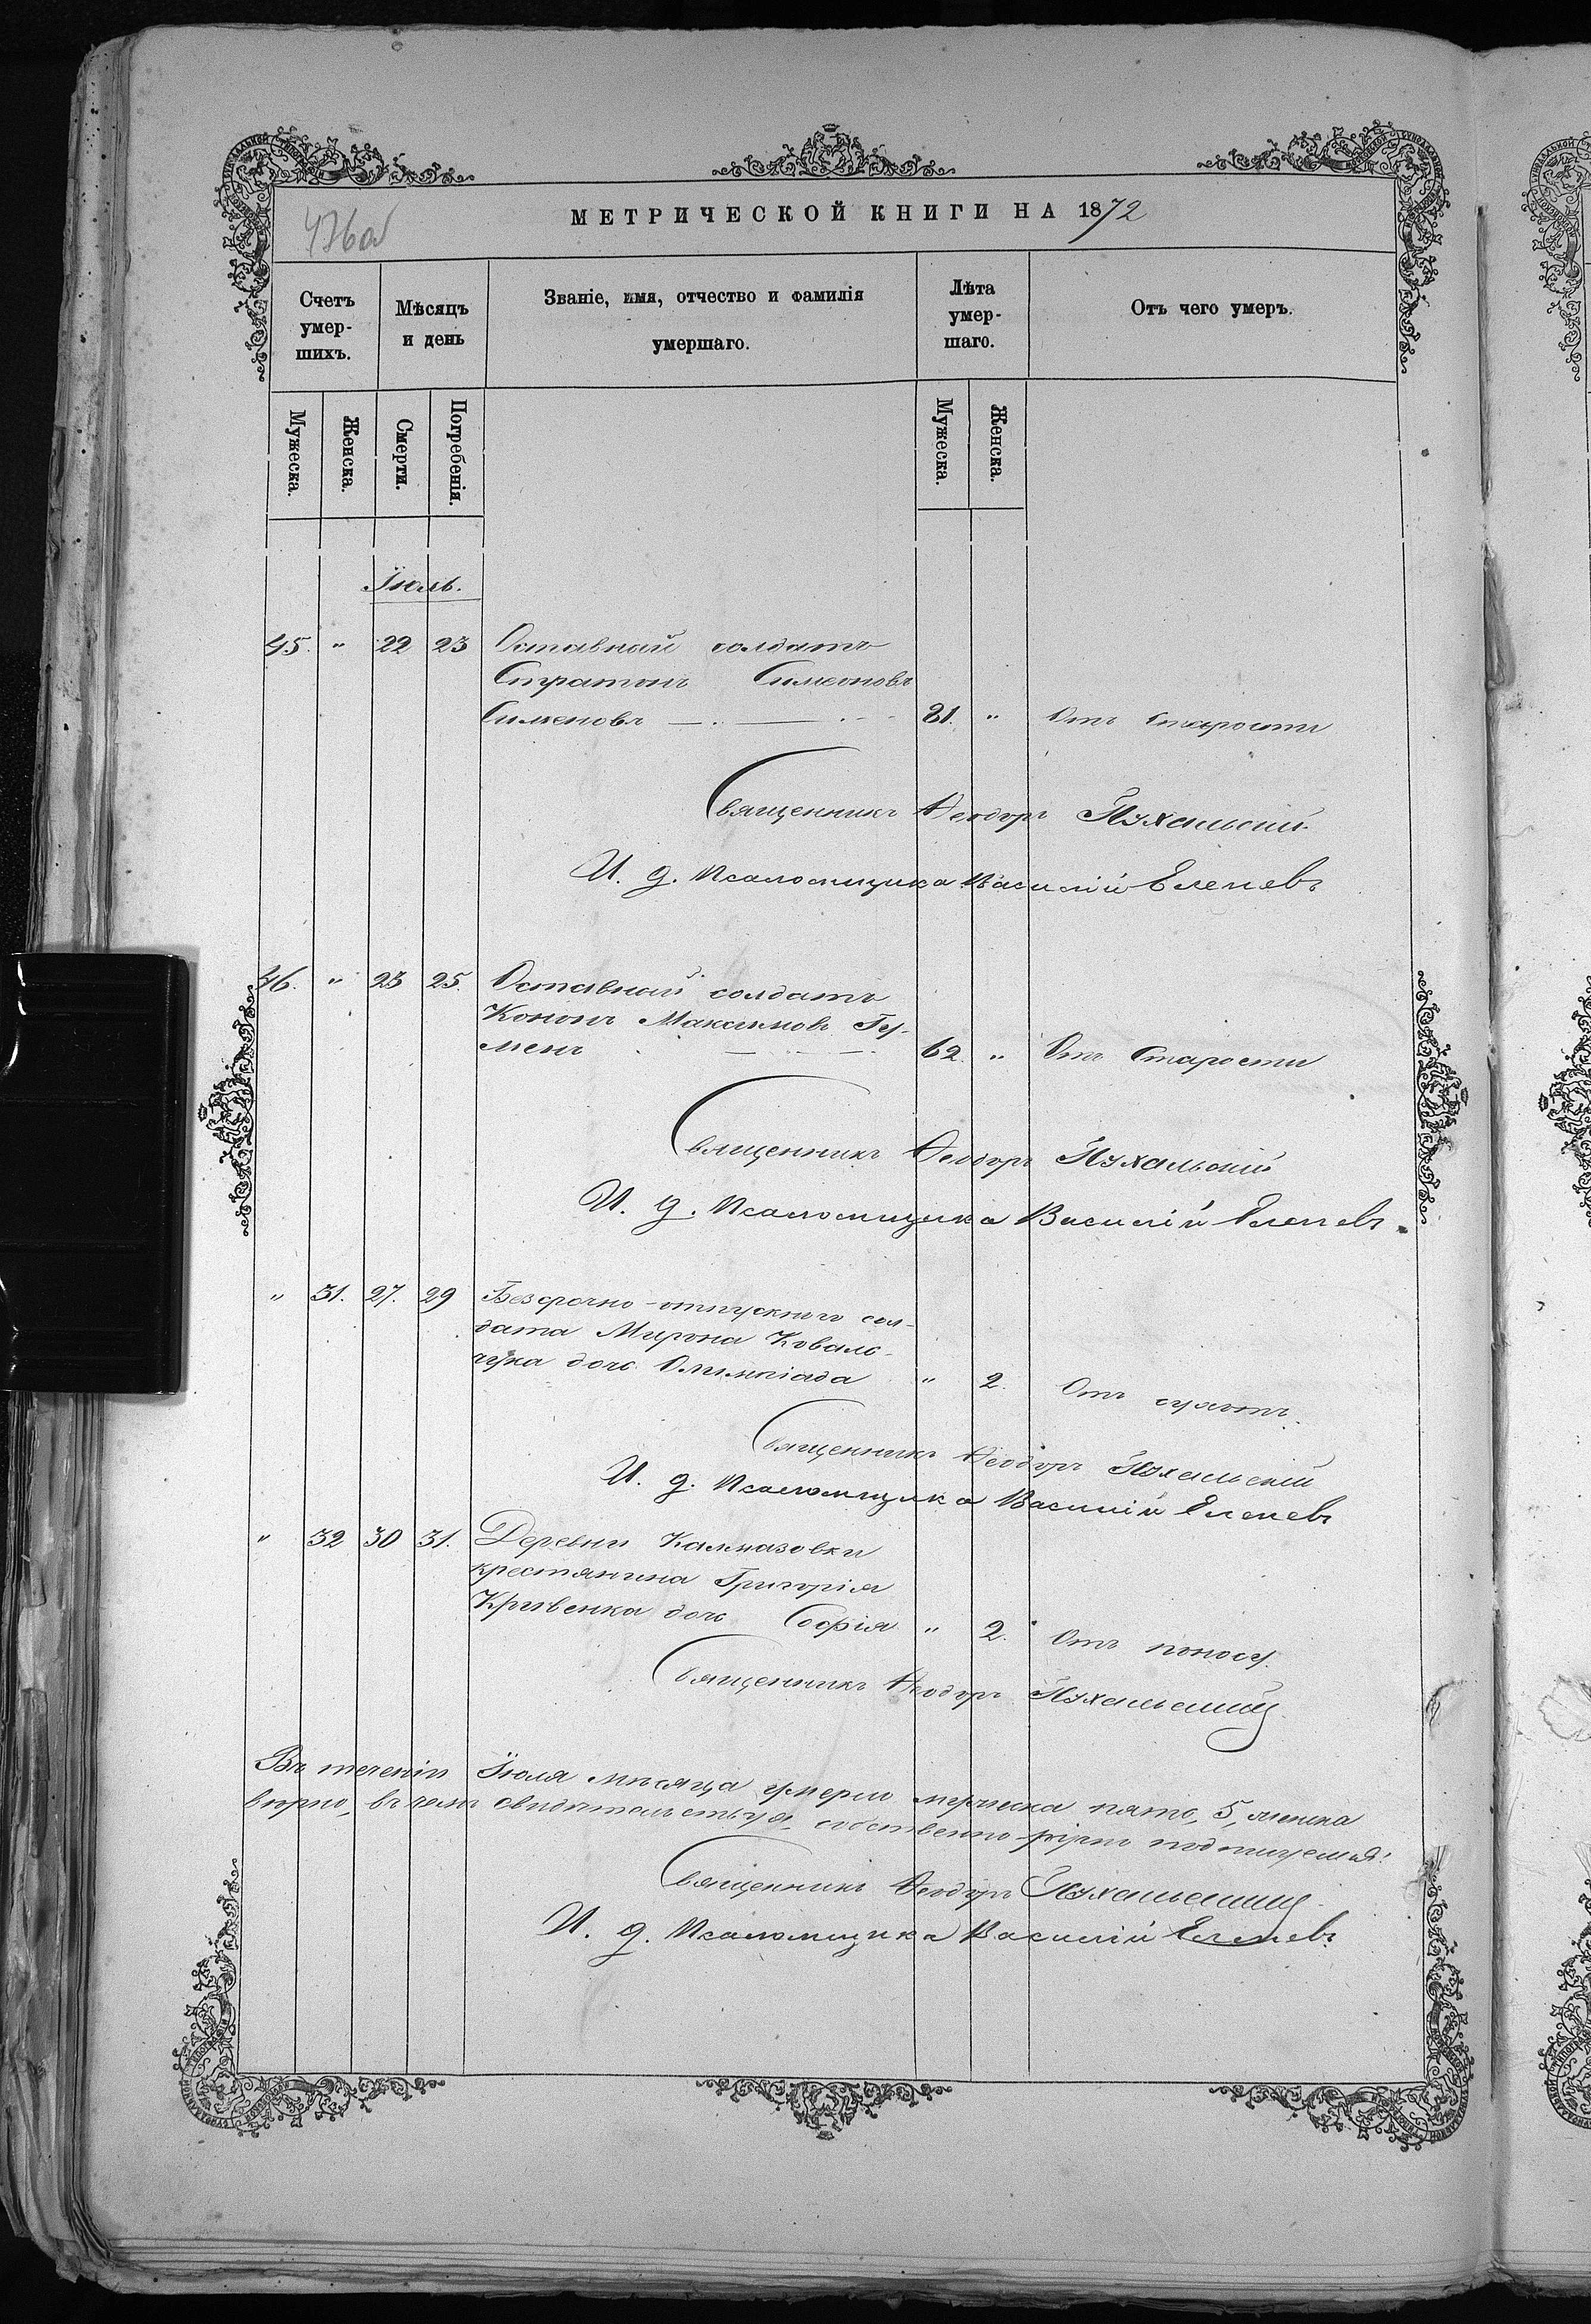 МЕТРИЧЕСКОЙ КНИГИ НА 1872
476об
Счетъ умер-шихъ.
Мѣсяцъ и день
Званіе, имя, отчество и фамилія
умершаго.
Лѣта умер-шаго.
Отъ чего умеръ.
Мужеска.
Женска.
Смерти.
Погребенія.
Мужеска.
Женска.
Іюль.
45. " 22 23 Отставной солдатъ
Стратонъ Симеоновъ
Сименовъ 81. " Отъ старости
Священникъ Ѳеодоръ Пухальскій
И. д. Псаломщика Василій Еленевъ
46. " 23 25. Отставной солдатъ
Кононъ Максимовъ Гу-
менъ 62 " Отъ старости
Священникъ Ѳеодоръ Пухальскій
И. д. Псаломщика Василій Еленевъ
" 31. 27. 29 Безсрочно-отпускного сол-
дата Мирона Коваль-
чука дочь Олимпіада " 2. Отъ
Священникъ Ѳеодоръ Пухальскій
И. д. Псаломщика Василій Еленевъ
" 32 30 31. Деревни Калмазовки
крестянина Григорія
Кривенка дочь Софія " 2. Отъ поносу.
Священникъ Ѳеодоръ Пухальскій
Въ теченіи Іюля мѣсяца умерло мужеска пять, 5, женска
вѣрно, въ чемъ свидѣтельствуя собственно-ручно подписуемся:
Священникъ Ѳеодоръ Пухальскій
И. д. Псаломщика Василій Еленевъ